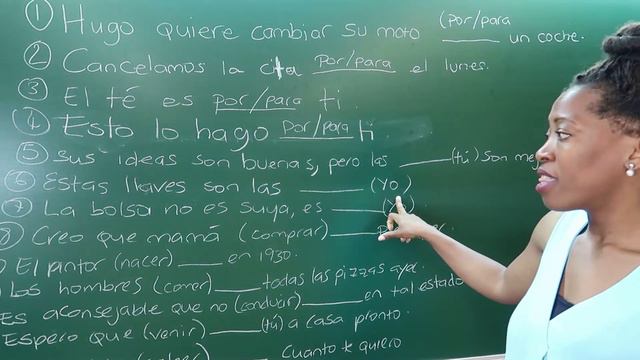 ① Hugo quiere cambiar su moto (por/para ____ un coche.
② Cancelamos la cita por/para el lunes.
③ El té es por/para ti.
④ Esto lo hago por/para ti
⑤ Sus ideas son buenas, pero las ____ (tú) son
⑥ Estas llaves son las ____ (yo)
⑦ La bolsa no es suya, es ____
⑧ Creo que mamá (comprar) ____
El pintor (nacer) ____ en 1930.
Los hombres (comer) ____ todas las pizzas ayer.
Es aconsejable que no (conducir) ____ en tal estado
Espero que (venir) ____ (tú) a casa pronto.
Cuanto te quiero